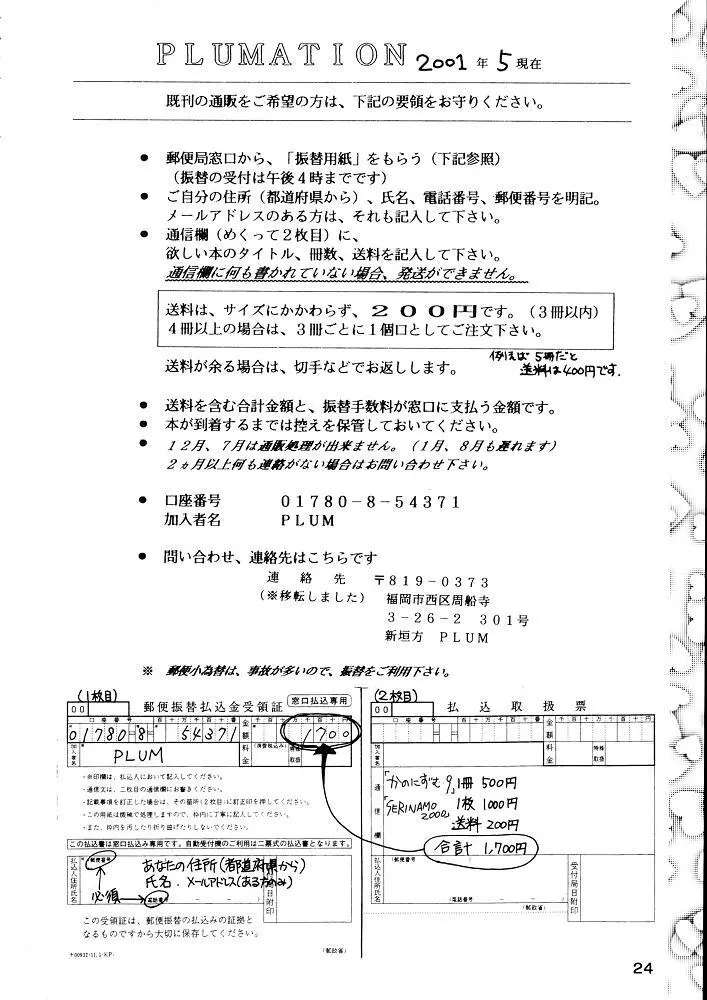 PLUMATION 2001年5現在
既刊の通販をご希望の方は、下記の要領をお守りください。
● 郵便局窓口から、「振替用紙」をもらう(下記参照)
(振替の受付は午後4時までです)
● ご自分の住所(都道府県から)、氏名、電話番号、郵便番号を明記。
メールアドレスのある方は、それも記入して下さい。
● 通信欄(めくって2枚目)に、
欲しい本のタイトル、冊数、送料を記入して下さい。
通信欄に何も書かれていない場合、発送ができません。
送料は、サイズにかかわらず、200円です。(3冊以内)
4冊以上の場合は、3冊ごとに1個口としてご注文下さい。
送料が余る場合は、切手などでお返しします。
例えば5冊だと
送料は400円です.
● 送料を含む合計金額と、振替手数料が窓口に支払う金額です。
● 本が到着するまでは控えを保管しておいてください。
● 12月、7月は通販処理が出来ません。(1月、8月も遅れます)
2ヵ月以上何も連絡がない場合はお問い合わせ下さい。
● 口座番号 01780-8-54371
加入者名 PLUM
● 問い合わせ、連絡先はこちらです
連絡先 〒819-0373
(※移転しました) 福岡市西区周船寺
3-26-2 301号
新垣方 PLUM
※ 郵便小為替は、事故が多いので、振替をご利用下さい。
(1枚目)
00 郵便振替払込金受領証 窓口払込専用
口座番号 百十万千百十番 金額 千百十万千百十円
01780-8 54371 1700
加入者名 PLUM 料金 (消費税込み) 特殊取扱
・※印欄は、払込人において記入してください。
・通信文は、二枚目の通信欄にお書きください。
・記載事項を訂正した場合は、その箇所(2枚目)に訂正印を押してください。
・この用紙は機械で処理しますので、枠内に丁寧に記入してください。
・また、枠内を汚したり折り曲げたりしないでください。
この払込書は窓口払込み専用です。自動受付機のご利用は二票式の払込書となります。
払込人住所氏名 郵便番号 あなたの住所(都道府県から)
氏名.メールアドレス(ある方のみ)
必須 電話番号
日附印
この受領証は、郵便振替の払込みの証拠と
なるものですから大切に保存してください。
(郵政省)
(2枚目)
00 払込取扱票
口座番号 百十万千百十番 金額 千百十万千百十円
加入者名 料金 特殊取扱
通信欄
「かのにずむ9」1冊 500円
「SERINAMO 2000」1枚 1000円
送料 200円
合計 1,700円
払込人住所氏名
(電話番号 - - )
受付局日附印
(郵政省)
24